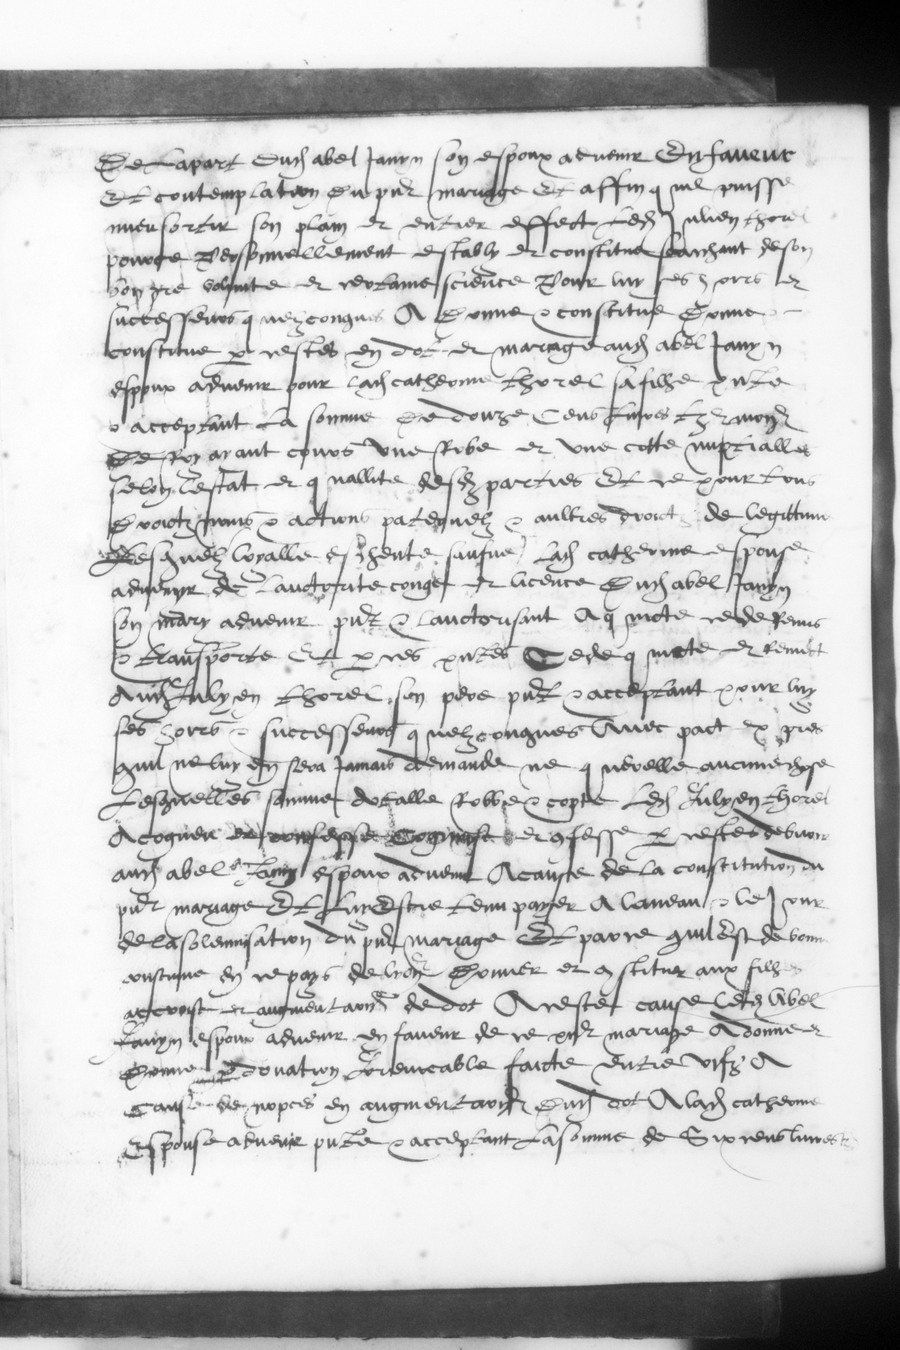 De la part dud abel Janyn son espoux advenir En faveur
Et contemplation du pnt mariage Et affin quil puisse
mieux sortir son plain et entier effect led Julien thorel
pour ce personnellement estably et constitue saichant de son
bon gre volunte et certaine science Pour luy ses hoirs et
successeurs quelzconques A donne & constitue donne &
constitue p cestes en dot et mariage aud abel Janyn
espoux advenir pour lad catherine thorel sa fille pnte
& acceptant la somme De douze Cens livres tz
De Roy ayant cours Une Robe et Une cotte nuptialles
selon lestat et quallite desd parties Et ce pour tous
droictz noms & actions paternelz & aultres droictz de legitime
Lesquelz loyalle escheute saufve lad catherine espouse
advenir de lauctorite conge et licence dud abel Janyn
son mary advenir pnt & lauctorisant A quicte cede Remis
& transporte Et p ces pntes Cede quicte et Remect
Aud Julyen thorel son pere pnt & acceptant pour luy
ses hoirs & successeurs quelzconques Avec pact expres
quil ne luy en sera Jamais demande ne querelle aucune chose
Lesquelles somme dotalle Robbe & cotte led Julyen thorel
A cogneu et confesse Cognoist et confesse p cestes debvoir
aud abel Janyn espoux advenir A cause de la constitution du
pnt mariage Et luy Estre tenu payer A laneau & le Jour
de la solemnisation du pnt mariage Et parce quil Est de bonne
coustume en ce pays de donner et constituer aux filles
accroist et augmentation de dot A ceste cause led Abel
Janyn espoux advenir en faveur de ce pnt mariage A donne et
donne p donation Irrevocable faicte entre vifz A
cause de nopces en augmentation dud dot A lad catherine
Espouse advenir pnte & acceptant la somme de Six cens livres tz